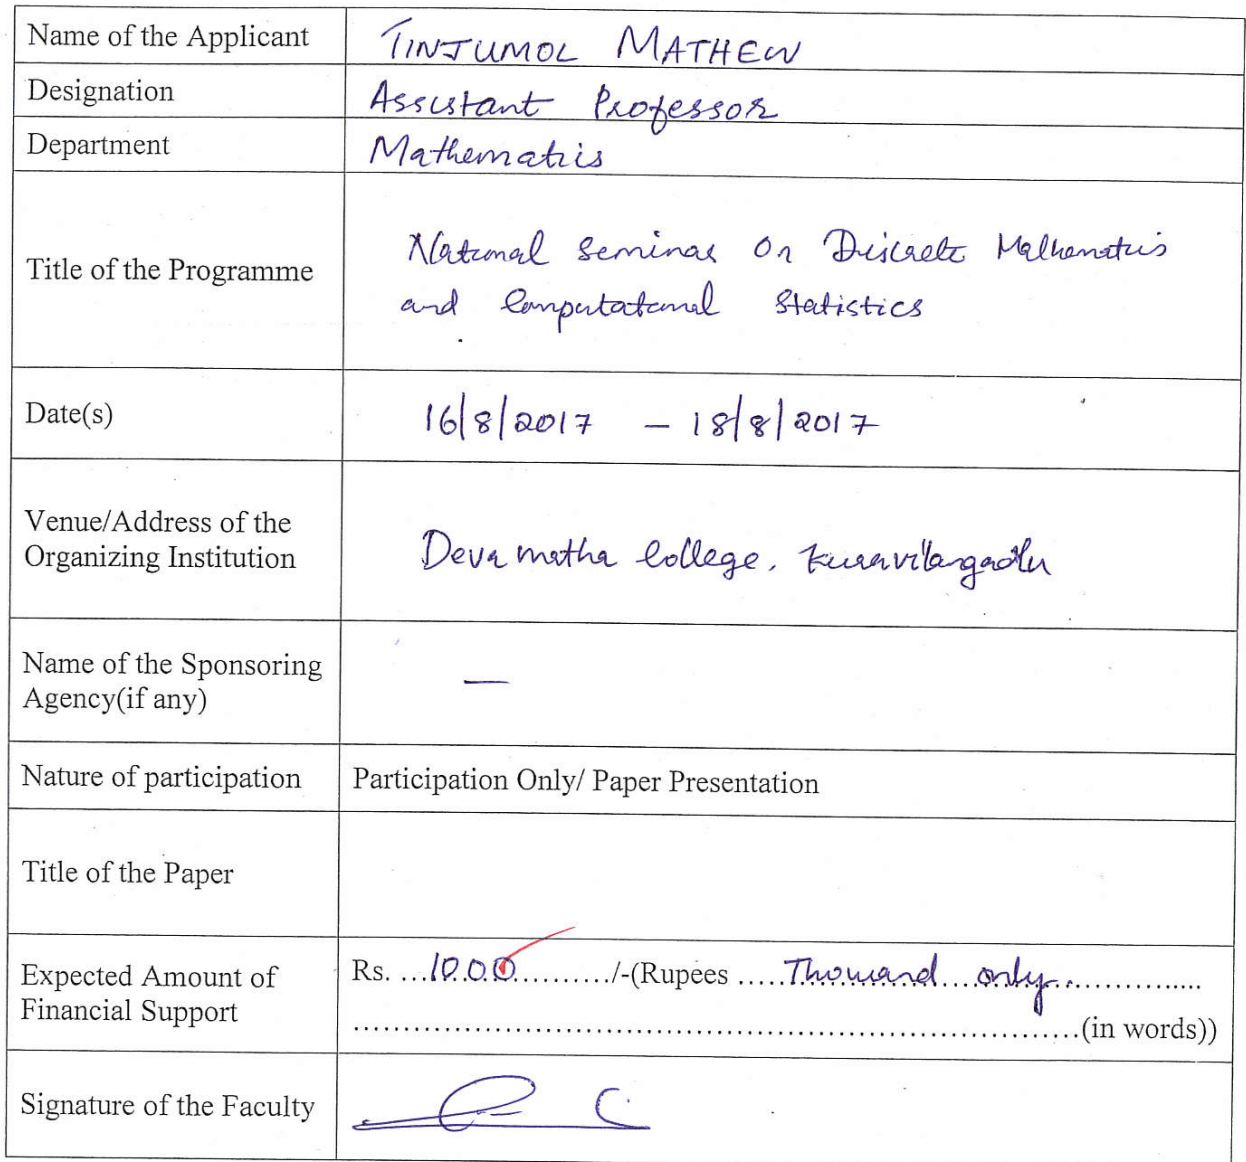 Name of the Applicant TINJUMOL MATHEW
Designation Assistant Professor
Department Mathematics
Title of the Programme National Seminar On Discrete Mathematics
and Computational Statistics
Date(s) 16/8/2017 – 18/8/2017
Venue/Address of the
Organizing Institution Deva matha College, Kuravilangadu
Name of the Sponsoring
Agency(if any) —
Nature of participation Participation Only/ Paper Presentation
Title of the Paper
Expected Amount of
Financial Support
Rs. ...1000........../-(Rupees .....Thousand...only..................
..........................................................................(in words))
Signature of the Faculty